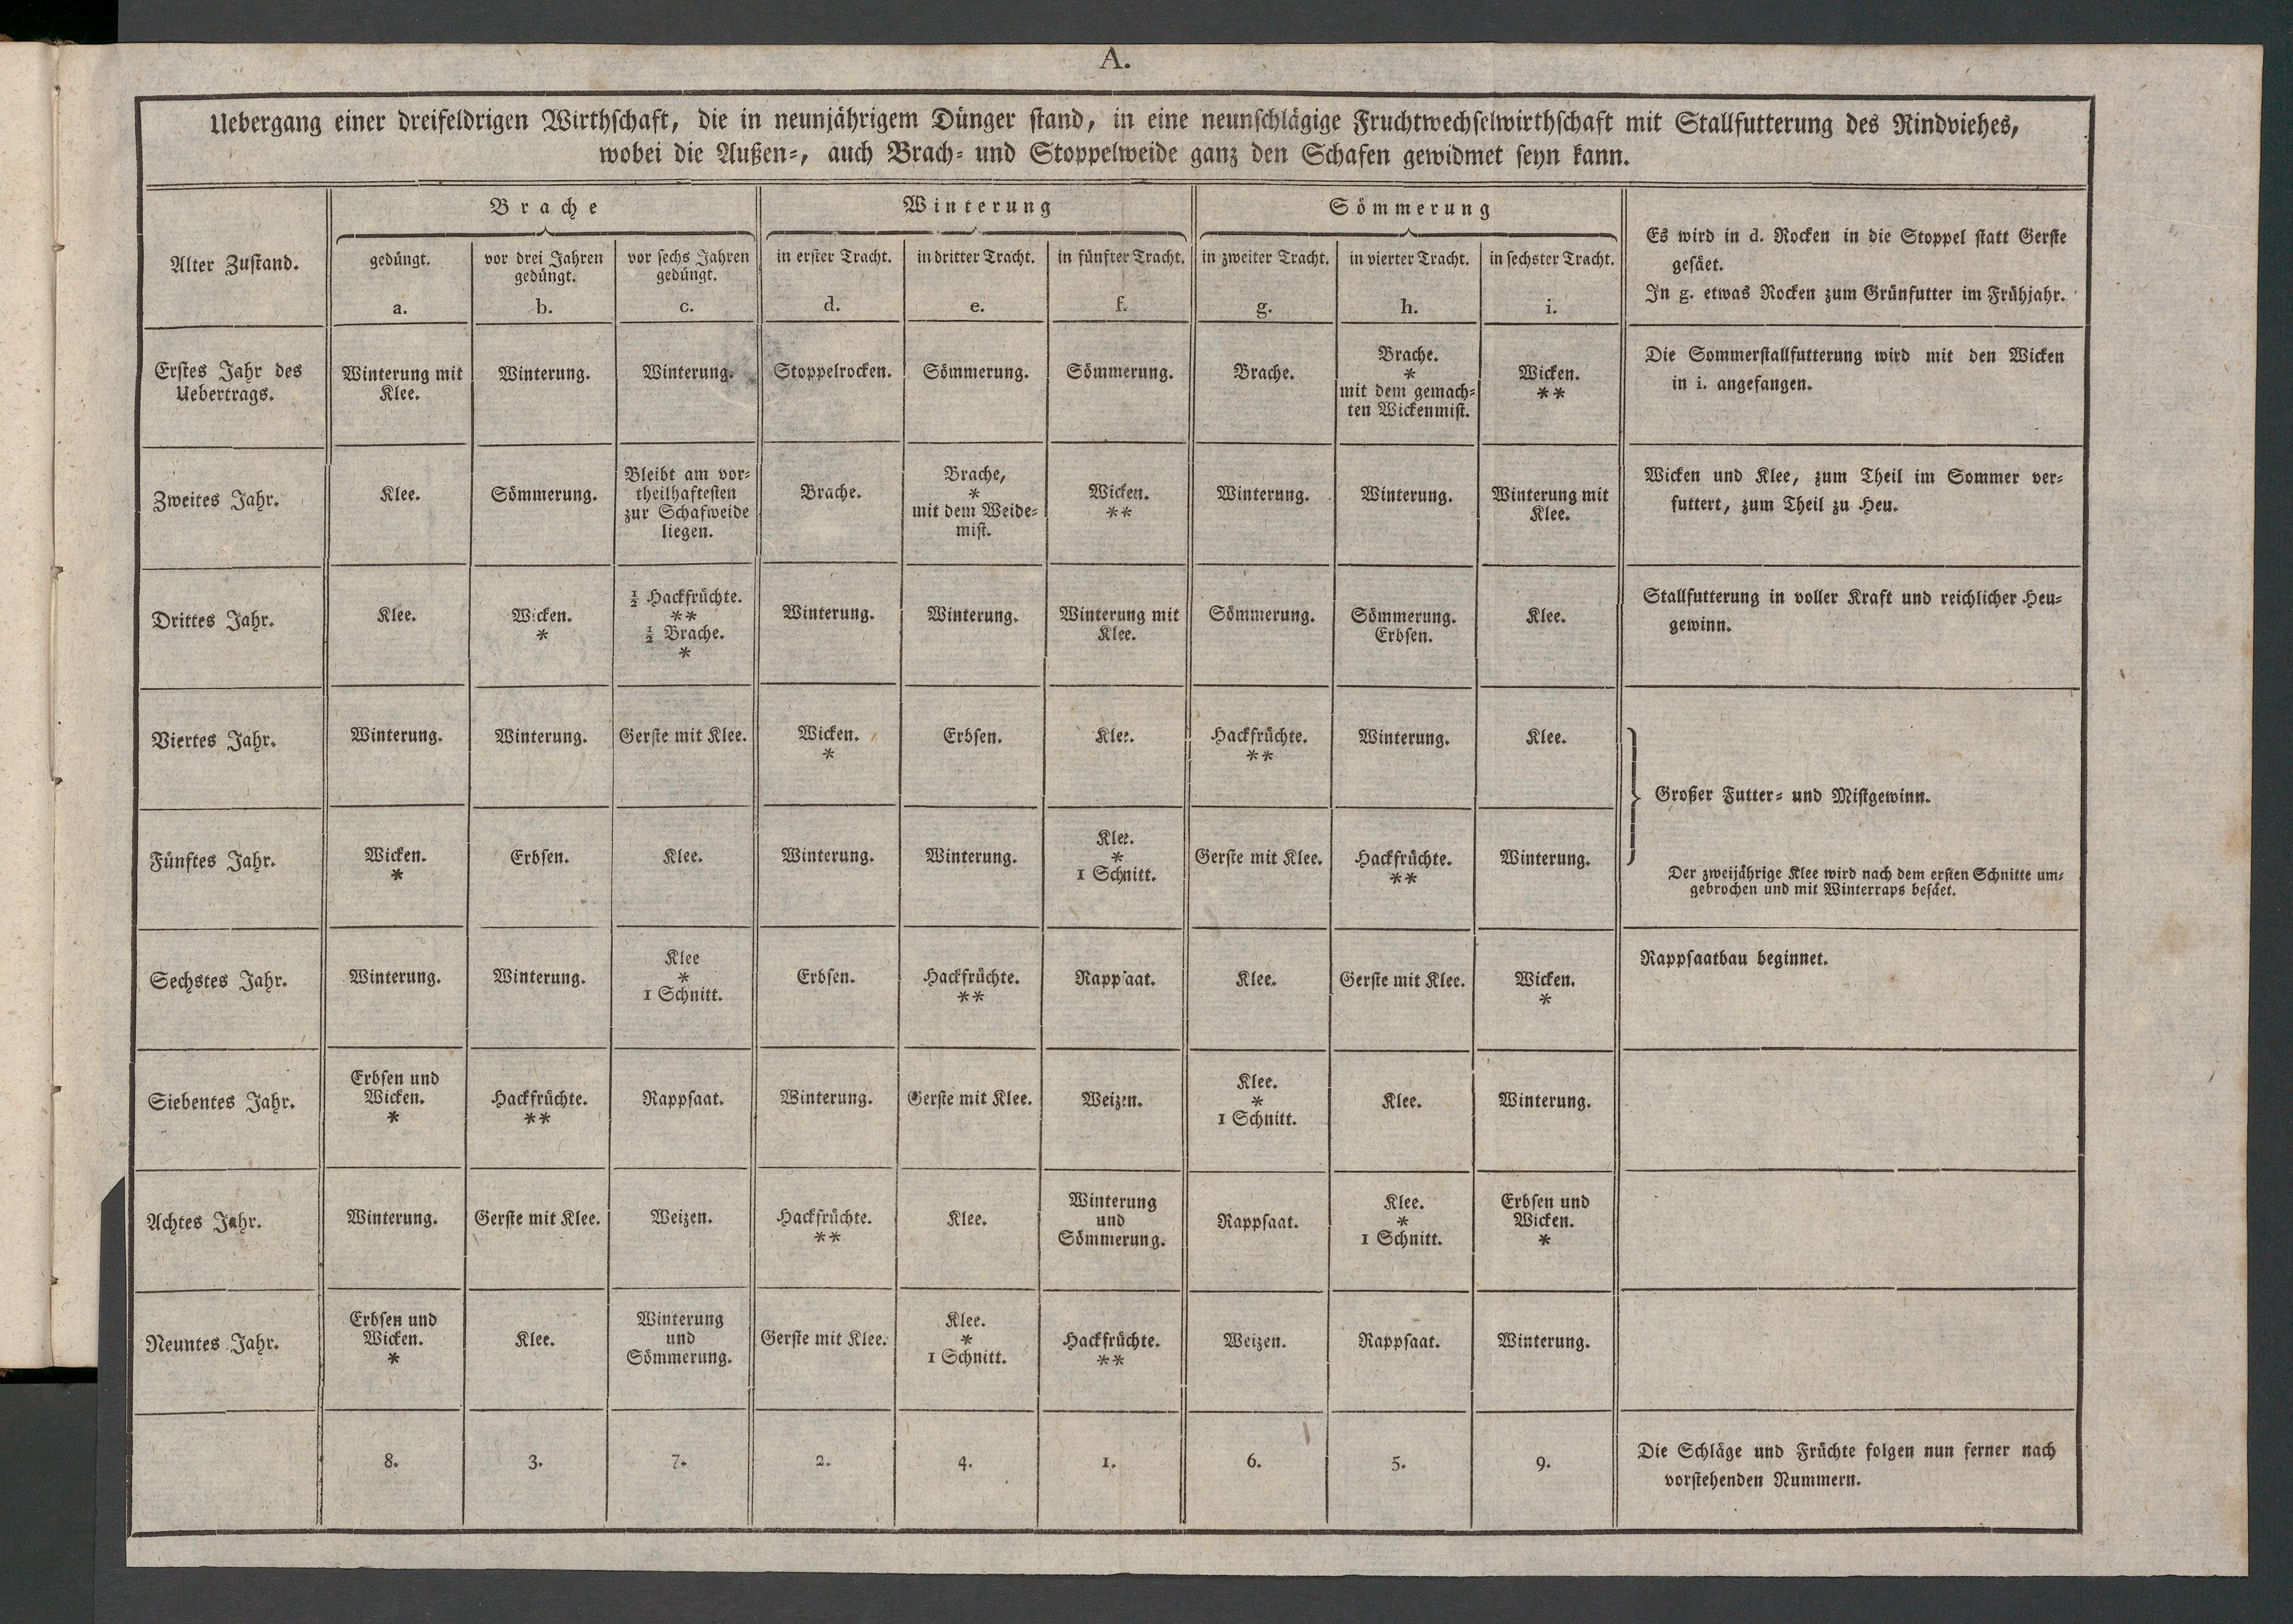 A.
Uebergang einer dreifeldrigen Wirthschaft, die in neunjährigem Dünger stand, in eine neunschlägige Fruchtwechselwirthschaft mit Stallfutterung des Rindviehes,
wobei die Außen-, auch Brach- und Stoppelweide ganz den Schafen gewidmet seyn kann.
Alter Zustand.
Brache
gedüngt.
a.
vor drei Jahren
gedüngt.
b.
vor sechs Jahren
gedüngt.
c.
Winterung
in erster Tracht.
d.
in dritter Tracht.
e.
in fünfter Tracht.
f.
Sömmerung
in zweiter Tracht.
g.
in vierter Tracht.
h.
in sechster Tracht.
i.
Es wird in d. Rocken in die Stoppel statt Gerste
gesäet.
In g. etwas Rocken zum Grünfutter im Frühjahr.
Erstes Jahr des
Uebertrags.
Winterung mit
Klee.
Winterung.
Winterung.
Stoppelrocken.
Sömmerung.
Sömmerung.
Brache.
Brache.
*
mit dem gemach-
ten Wickenmist.
Wicken.
**
Die Sommerstallfutterung wird mit den Wicken
in i. angefangen.
Zweites Jahr.
Klee.
Sömmerung.
Bleibt am vor-
theilhaftesten
zur Schafweide
liegen.
Brache.
Brache,
*
mit dem Weide-
mist.
Wicken.
**
Winterung.
Winterung.
Winterung mit
Klee.
Wicken und Klee, zum Theil im Sommer ver-
futtert, zum Theil zu Heu.
Drittes Jahr.
Klee.
Wicken.
*
½ Hackfrüchte.
**
½ Brache.
*
Winterung.
Winterung.
Winterung mit
Klee.
Sömmerung.
Sömmerung.
Erbsen.
Klee.
Stallfutterung in voller Kraft und reichlicher Heu-
gewinn.
Viertes Jahr.
Winterung.
Winterung.
Gerste mit Klee.
Wicken.
*
Erbsen.
Klee.
Hackfrüchte.
**
Winterung.
Klee.
Großer Futter- und Mistgewinn.
Fünftes Jahr.
Wicken.
*
Erbsen.
Klee.
Winterung.
Winterung.
Klee.
*
1 Schnitt.
Gerste mit Klee.
Hackfrüchte.
**
Winterung.
Der zweijährige Klee wird nach dem ersten Schnitte um-
gebrochen und mit Winterraps besäet.
Sechstes Jahr.
Winterung.
Winterung.
Klee
*
1 Schnitt.
Erbsen.
Hackfrüchte.
**
Rappsaat.
Klee.
Gerste mit Klee.
Wicken.
*
Rappsaatbau beginnet.
Siebentes Jahr.
Erbsen und
Wicken.
*
Hackfrüchte.
**
Rappsaat.
Winterung.
Gerste mit Klee.
Weizen.
Klee.
*
1 Schnitt.
Klee.
Winterung.
Achtes Jahr.
Winterung.
Gerste mit Klee.
Weizen.
Hackfrüchte.
**
Klee.
Winterung
und
Sömmerung.
Rappsaat.
Klee.
*
1 Schnitt.
Erbsen und
Wicken.
*
Neuntes Jahr.
Erbsen und
Wicken.
*
Klee.
Winterung
und
Sömmerung.
Gerste mit Klee.
Klee.
*
1 Schnitt.
Hackfrüchte.
**
Weizen.
Rappsaat.
Winterung.
8.
3.
7.
2.
4.
1.
6.
5.
9.
Die Schläge und Früchte folgen nun ferner nach
vorstehenden Nummern.